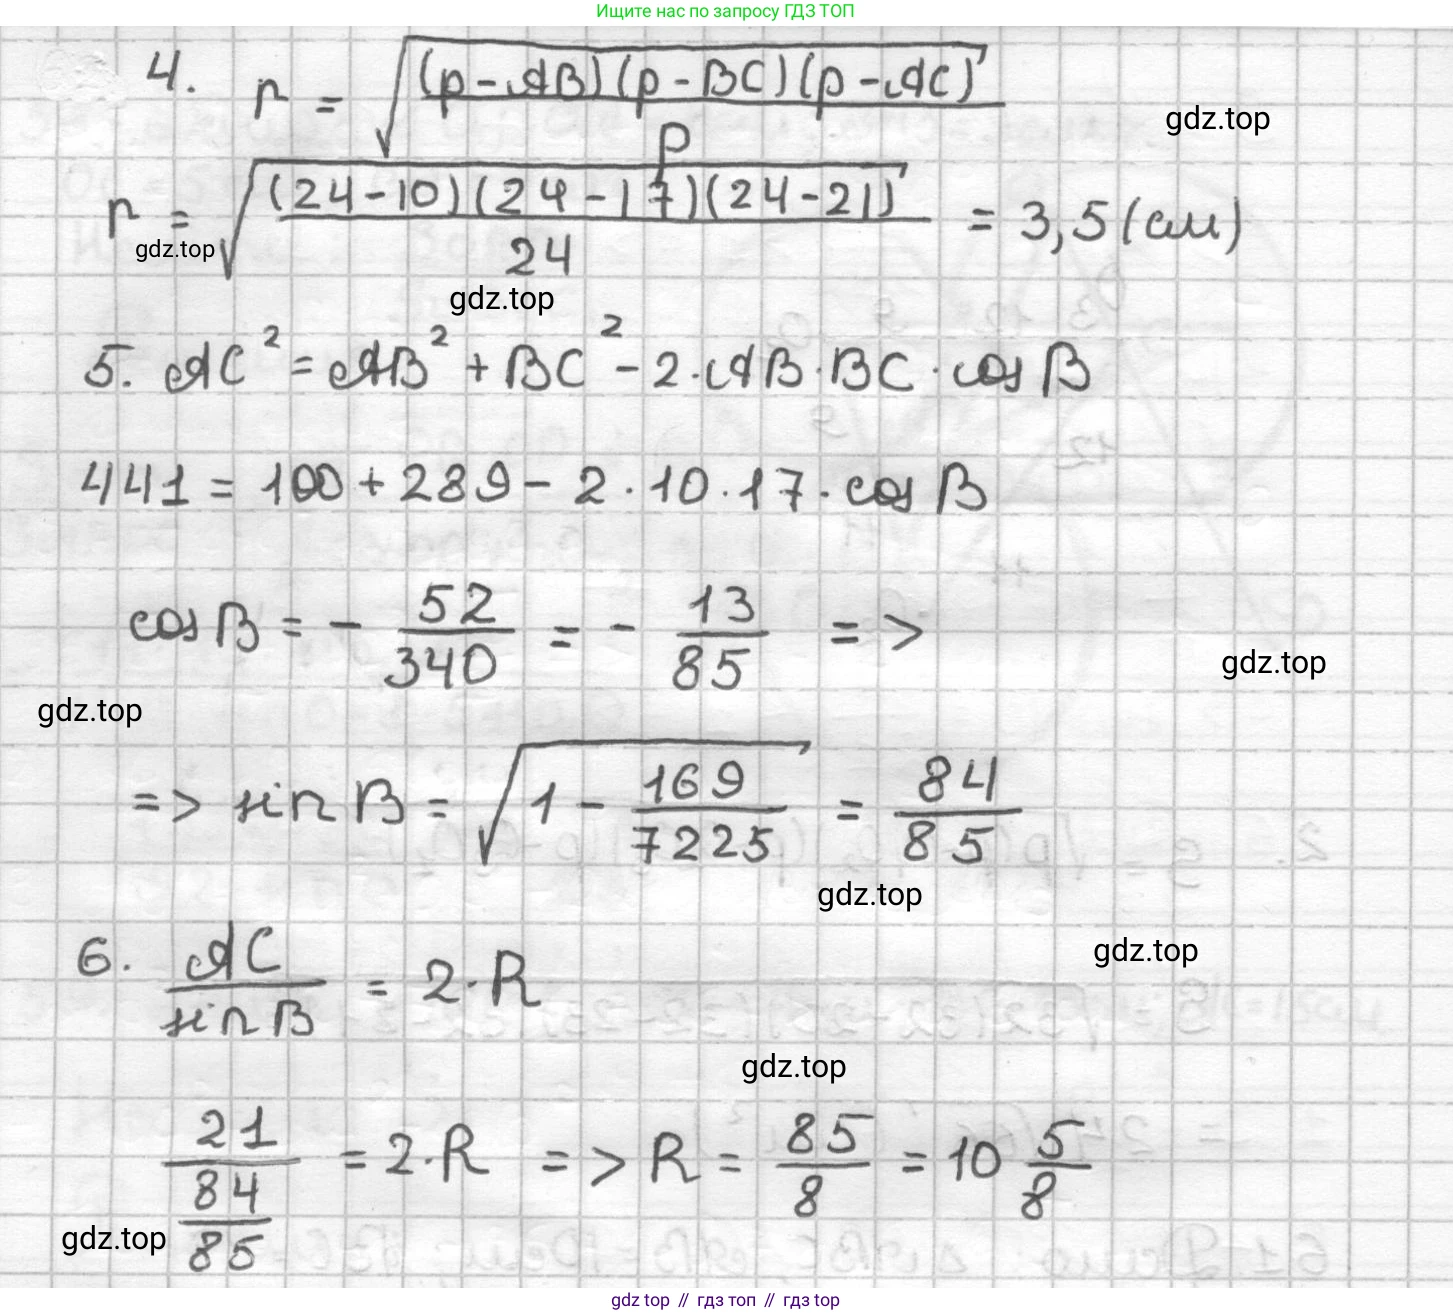 Ищите нас по запросу ГДЗ ТОП
4. r = √((p-AB)(p-BC)(p-AC)/p)
gdz.top
r = √((24-10)(24-17)(24-21)/24) = 3,5 (см)
gdz.top
gdz.top
5. AC² = AB² + BC² - 2·AB·BC·cos B
441 = 100 + 289 - 2·10·17·cos B
cos B = - 52/340 = - 13/85 =>
gdz.top
gdz.top
=> sin B = √(1 - 169/7225) = 84/85
gdz.top
6. AC/sin B = 2·R
gdz.top
gdz.top
21/(84/85) = 2·R => R = 85/8 = 10 5/8
gdz.top
gdz top // гдз топ // гдз top